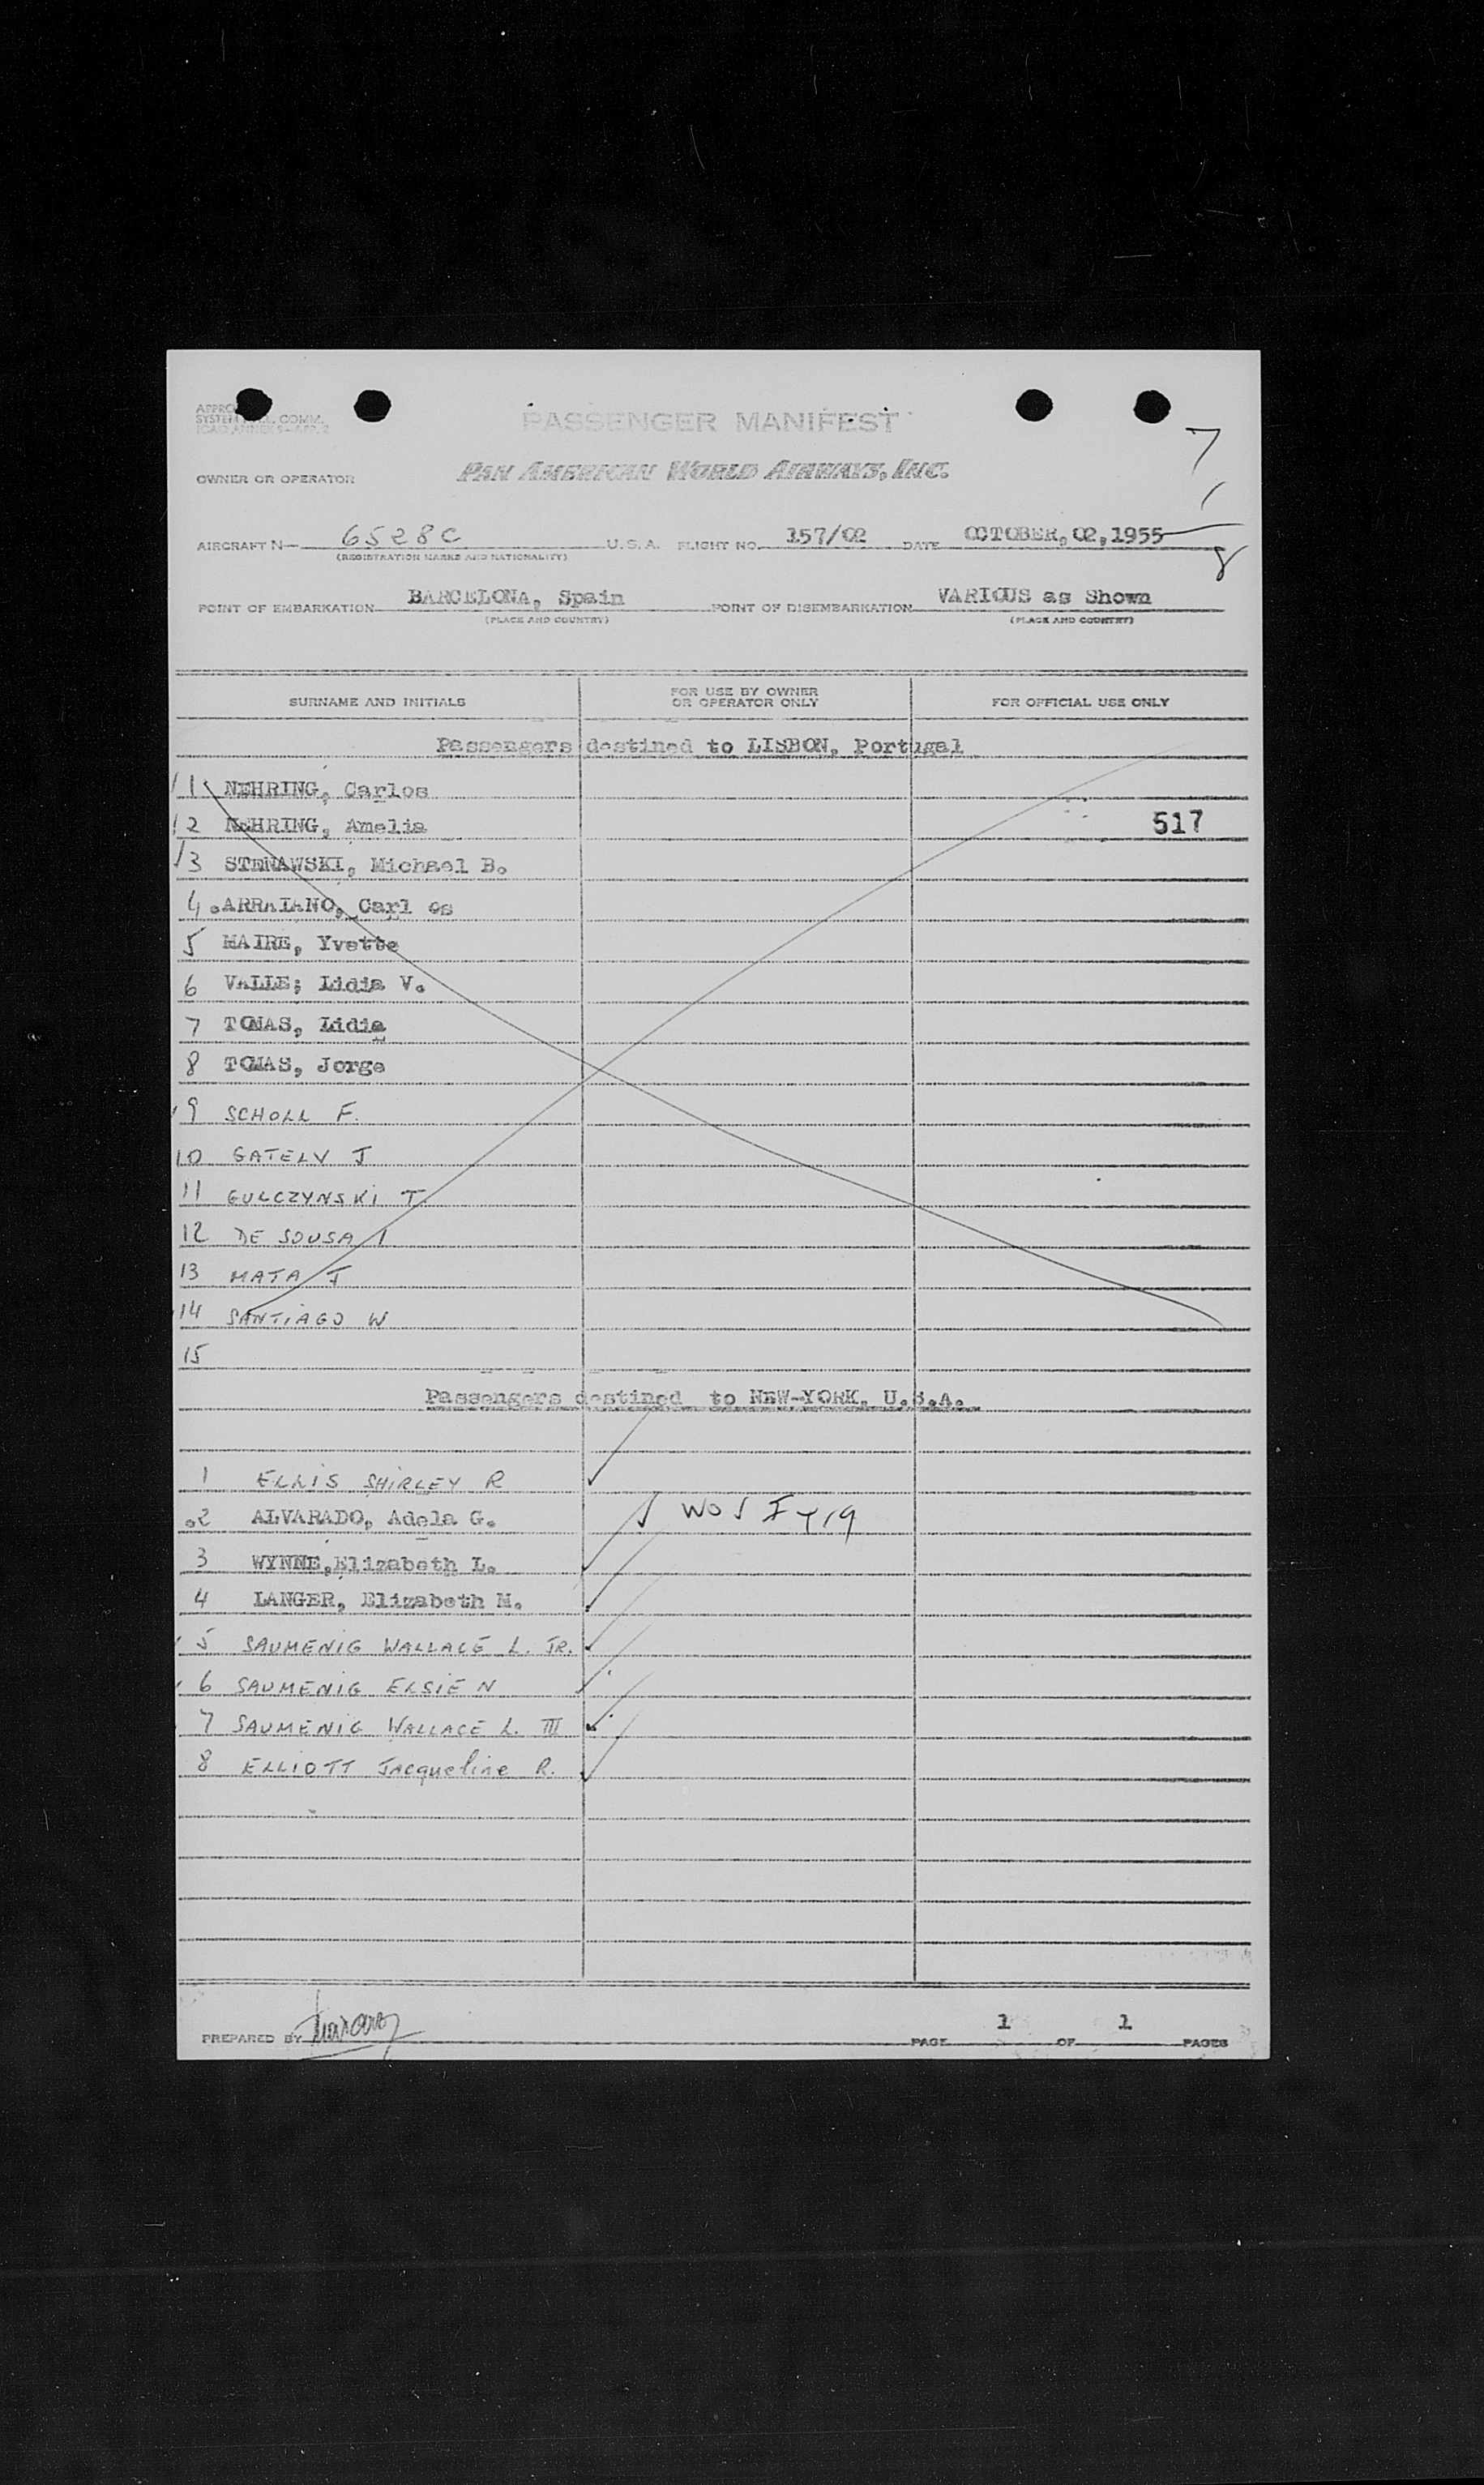 PASSENGER MANIFEST
7
OWNER OR OPERATOR PAN AMERICAN WORLD AIRWAYS, INC.
AIRCRAFT N— 6528C U.S.A. FLIGHT NO. 157/02 DATE OCTOBER, 02, 1955
(REGISTRATION MARKS AND NATIONALITY)
8
POINT OF EMBARKATION BARCELONA, Spain POINT OF DISEMBARKATION VARIOUS as Shown
(PLACE AND COUNTRY) (PLACE AND COUNTRY)
SURNAME AND INITIALS FOR USE BY OWNER OR OPERATOR ONLY FOR OFFICIAL USE ONLY
Passengers destined to LISBON, Portugal
1 NEHRING, Carlos
2 NEHRING, Amelia 517
3 STENAWSKI, Michael B.
4 .ARRAIANO, Carl os
5 MAIRE, Yvette
6 VALLE; Lidia V.
7 TOMAS, Lidia
8 TOMAS, Jorge
9 SCHOLL F.
10 GATELY J
11 GULCZYNSKI T.
12 DE SOUSA I
13 MATA J
14 SANTIAGO W
15
Passengers destined to NEW-YORK, U.S.A.
1 ELLIS SHIRLEY R
.2 ALVARADO, Adela G.
3 WYNNE,Elizabeth L.
4 LANGER, Elizabeth M.
5 SAUMENIG WALLACE L. JR.
6 SAUMENIG ELSIE N
7 SAUMENIG WALLACE L. III
8 ELLIOTT Jacqueline R.
PREPARED BY PAGE 1 OF 1 PAGES